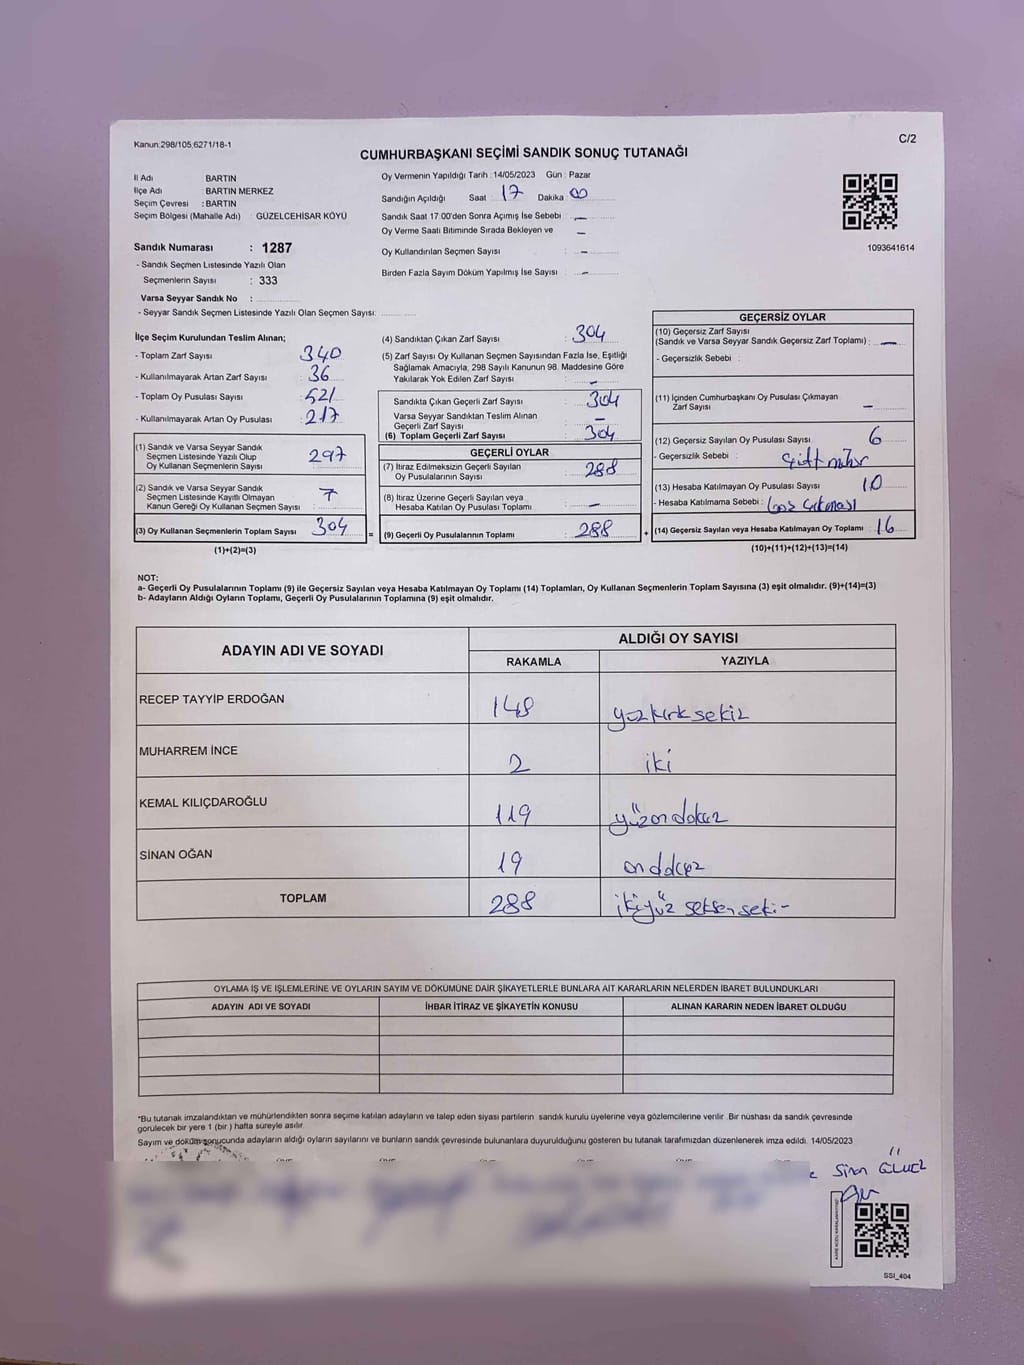 Kanun:298/105;6271/18-1
C/2
CUMHURBAŞKANI SEÇİMİ SANDIK SONUÇ TUTANAĞI
İl Adı : BARTIN
İlçe Adı : BARTIN MERKEZ
Seçim Çevresi : BARTIN
Seçim Bölgesi (Mahalle Adı) GÜZELCEHİSAR KÖYÜ
Sandık Numarası : 1287
- Sandık Seçmen Listesinde Yazılı Olan
Seçmenlerin Sayısı : 333
Varsa Seyyar Sandık No :
- Seyyar Sandık Seçmen Listesinde Yazılı Olan Seçmen Sayısı:
Oy Vermenin Yapıldığı Tarih : 14/05/2023 Gün : Pazar
Sandığın Açıldığı Saat : 17 Dakika : 00
Sandık Saat 17.00'den Sonra Açımış İse Sebebi : -
Oy Verme Saati Bitiminde Sırada Bekleyen ve -
Oy Kullandırılan Seçmen Sayısı : -
Birden Fazla Sayım Döküm Yapılmış İse Sayısı : -
1093641614
İlçe Seçim Kurulundan Teslim Alınan;
- Toplam Zarf Sayısı 340
- Kullanılmayarak Artan Zarf Sayısı 36
- Toplam Oy Pusulası Sayısı 521
- Kullanılmayarak Artan Oy Pusulası 217
(1) Sandık ve Varsa Seyyar Sandık
Seçmen Listesinde Yazılı Olup 297
Oy Kullanan Seçmenlerin Sayısı
(2) Sandık ve Varsa Seyyar Sandık
Seçmen Listesinde Kayıtlı Olmayan 7
Kanun Gereği Oy Kullanan Seçmen Sayısı :
(3) Oy Kullanan Seçmenlerin Toplam Sayısı 304
(1)+(2)=(3)
(4) Sandıktan Çıkan Zarf Sayısı : 304
(5) Zarf Sayısı Oy Kullanan Seçmen Sayısından Fazla İse, Eşitliği
Sağlamak Amacıyla, 298 Sayılı Kanunun 98. Maddesine Göre
Yakılarak Yok Edilen Zarf Sayısı : -
Sandıkta Çıkan Geçerli Zarf Sayısı : 304
Varsa Seyyar Sandıktan Teslim Alınan -
Geçerli Zarf Sayısı
(6) Toplam Geçerli Zarf Sayısı : 304
GEÇERLİ OYLAR
(7) İtiraz Edilmeksizin Geçerli Sayılan 288
Oy Pusulalarının Sayısı
(8) İtiraz Üzerine Geçerli Sayılan veya
Hesaba Katılan Oy Pusulası Toplamı : -
= (9) Geçerli Oy Pusulalarının Toplamı : 288 +
GEÇERSİZ OYLAR
(10) Geçersiz Zarf Sayısı
(Sandık ve Varsa Seyyar Sandık Geçersiz Zarf Toplamı) : -
- Geçersizlik Sebebi :
(11) İçinden Cumhurbaşkanı Oy Pusulası Çıkmayan
Zarf Sayısı -
(12) Geçersiz Sayılan Oy Pusulası Sayısı 6
- Geçersizlik Sebebi : çift mühür
(13) Hesaba Katılmayan Oy Pusulası Sayısı 10
- Hesaba Katılmama Sebebi : boş çıkması
(14) Geçersiz Sayılan veya Hesaba Katılmayan Oy Toplamı : 16
(10)+(11)+(12)+(13)=(14)
NOT:
a- Geçerli Oy Pusulalarının Toplamı (9) ile Geçersiz Sayılan veya Hesaba Katılmayan Oy Toplamı (14) Toplamları, Oy Kullanan Seçmenlerin Toplam Sayısına (3) eşit olmalıdır. (9)+(14)=(3)
b- Adayların Aldığı Oyların Toplamı, Geçerli Oy Pusulalarının Toplamına (9) eşit olmalıdır.
ADAYIN ADI VE SOYADI
ALDIĞI OY SAYISI
RAKAMLA YAZIYLA
RECEP TAYYİP ERDOĞAN 148 yüzkırksekiz
MUHARREM İNCE 2 iki
KEMAL KILIÇDAROĞLU 119 yüzondokuz
SİNAN OĞAN 19 ondokuz
TOPLAM 288 ikiyüz seksen
OYLAMA İŞ VE İŞLEMLERİNE VE OYLARIN SAYIM VE DÖKÜMÜNE DAİR ŞİKAYETLERLE BUNLARA AİT KARARLARIN NELERDEN İBARET BULUNDUKLARI
ADAYIN ADI VE SOYADI İHBAR İTİRAZ VE ŞİKAYETİN KONUSU ALINAN KARARIN NEDEN İBARET OLDUĞU
*Bu tutanak imzalandıktan ve mühürlendikten sonra seçime katılan adayların ve talep eden siyasi partilerin sandık kurulu üyelerine veya gözlemcilerine verilir .Bir nüshası da sandık çevresinde
görülecek bir yere 1 (bir ) hafta süreyle asılır.
Sayım ve döküm sonucunda adayların aldığı oyların sayılarını ve bunların sandık çevresinde bulunanlara duyurulduğunu gösteren bu tutanak tarafımızdan düzenlenerek imza edildi. 14/05/2023
Sinan
SSI_404